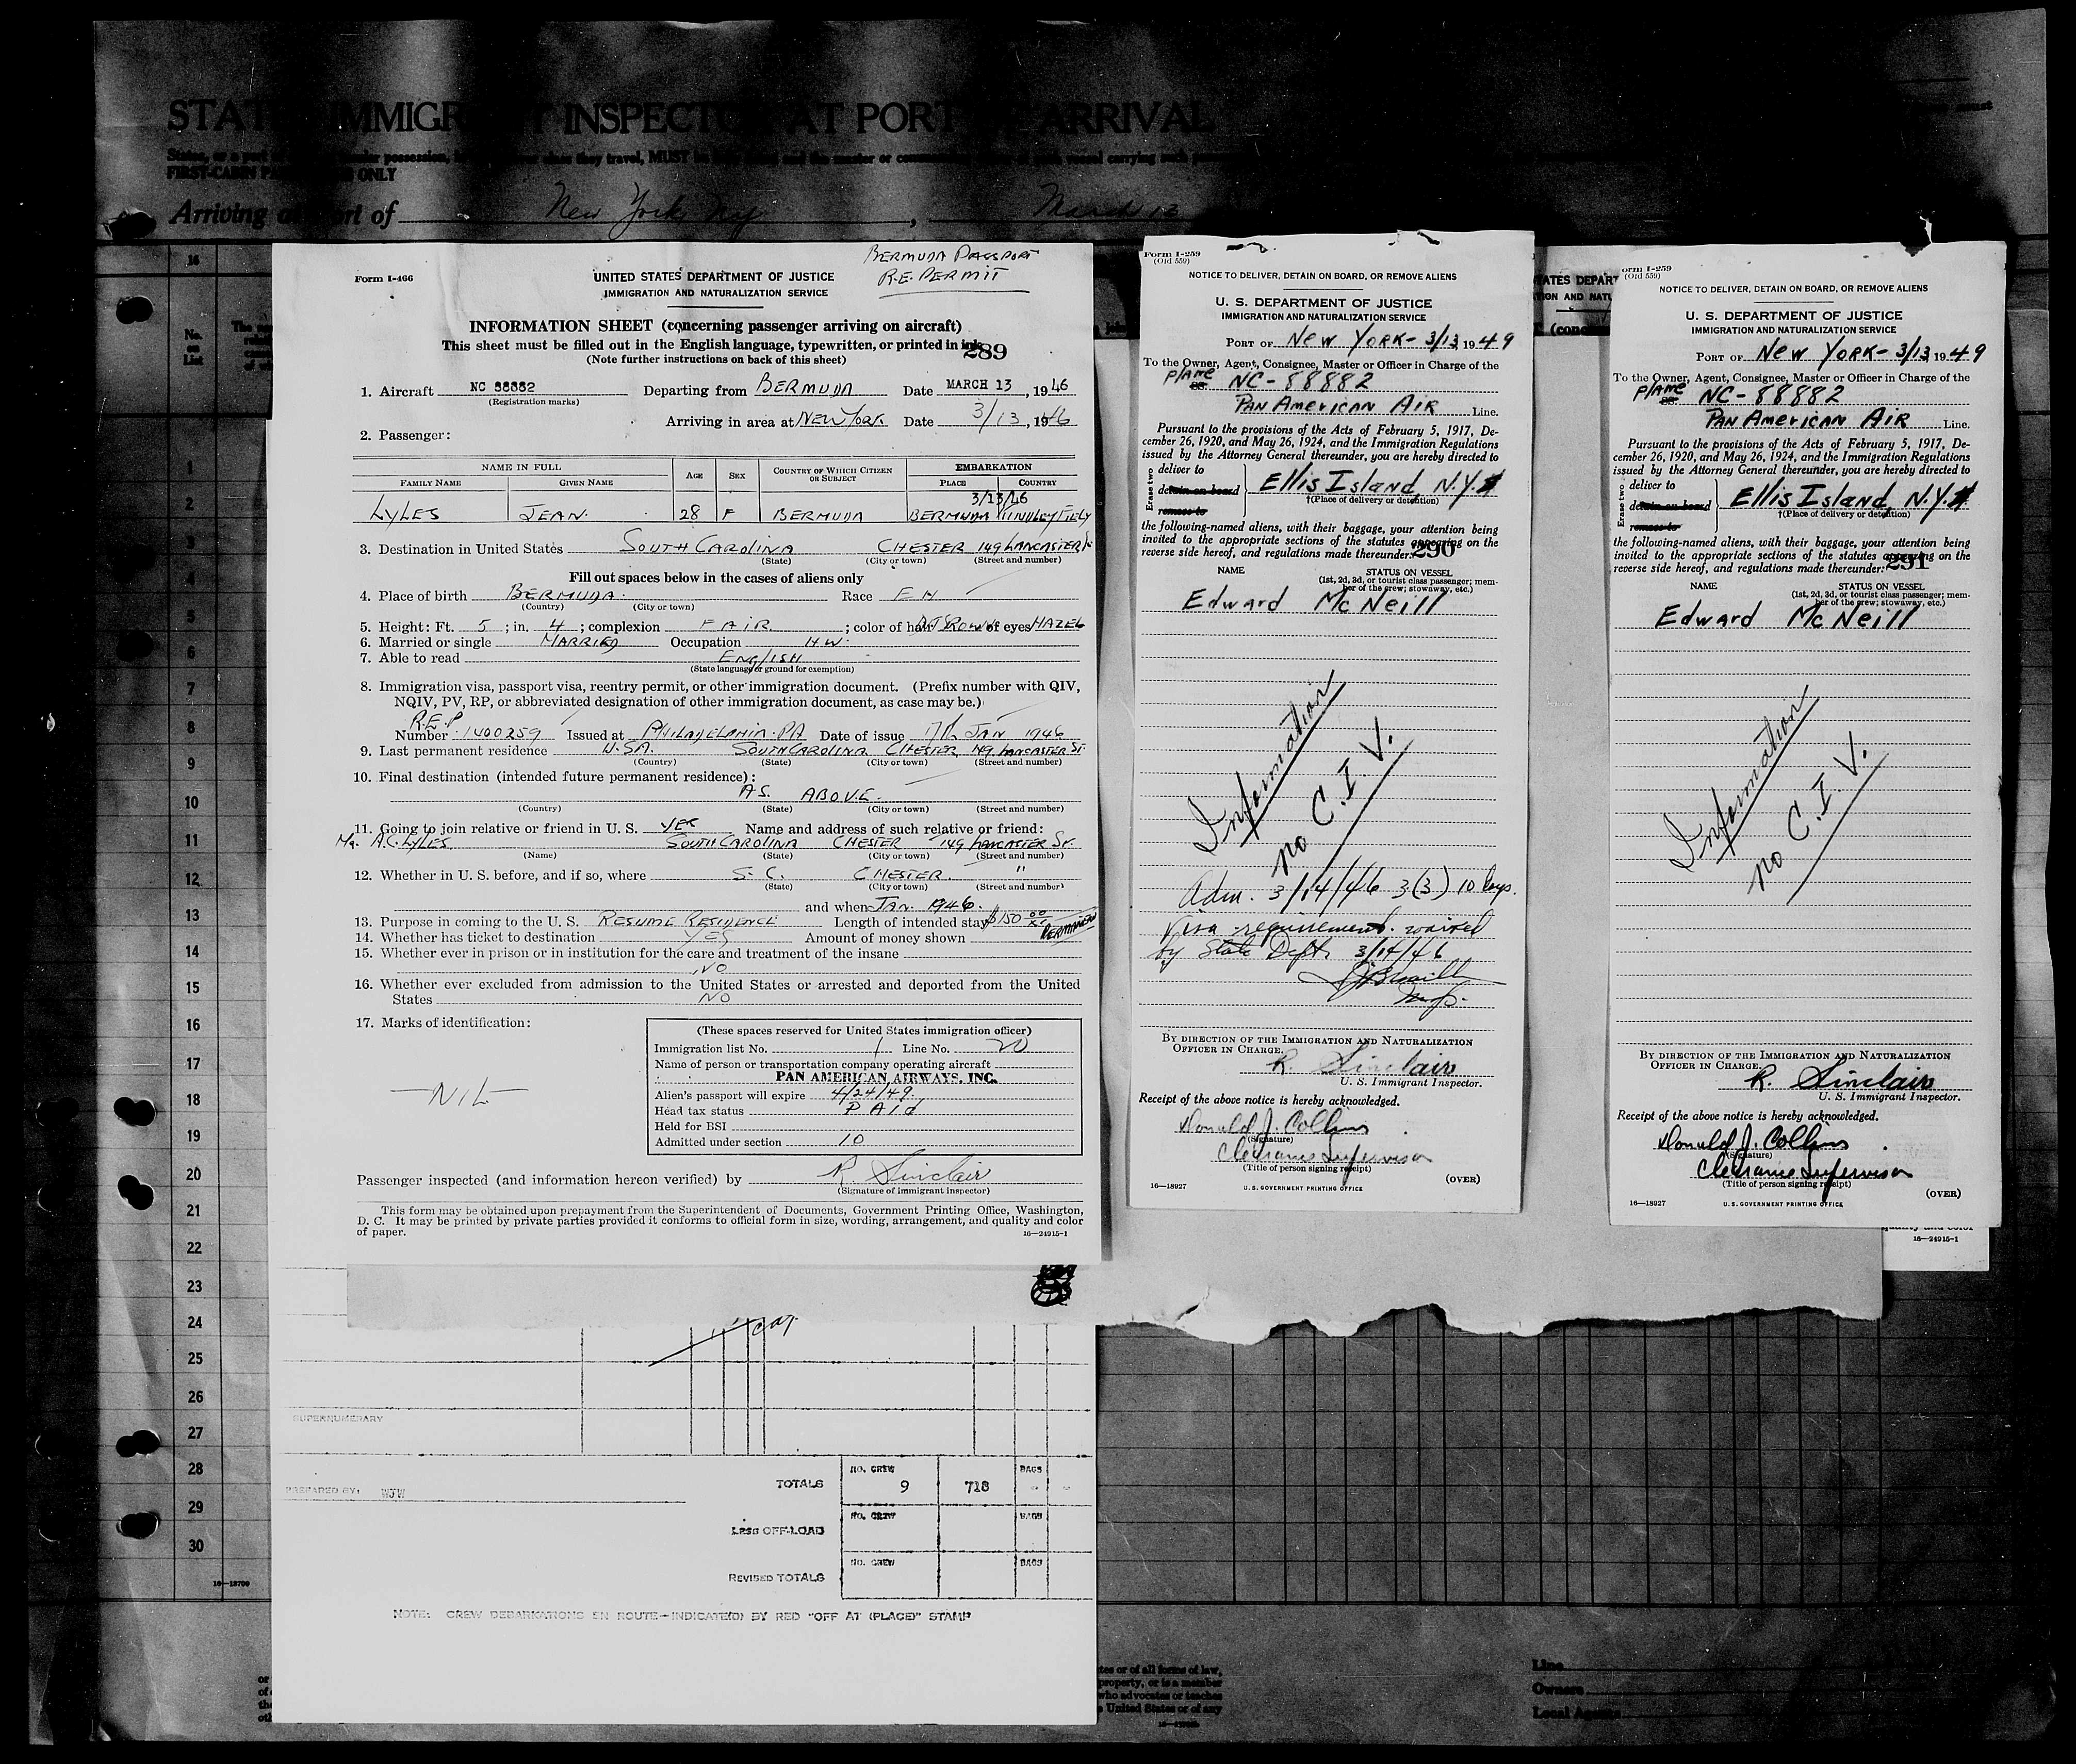 INSPECTOR AT PORT OF ARRIVAL
FIRST-CABIN PASSENGERS ONLY
Arriving at Port of New York, Ny, March 13
16
No. on List
1
2
3
4
5
6
7
8
9
10
11
12
13
14
15
16
17
18
19
20
21
22
23
24
25
26
27
28
29
30
16—18700
BERMUDA PASSPORT
R.E. PERMIT
Form I-466
UNITED STATES DEPARTMENT OF JUSTICE
IMMIGRATION AND NATURALIZATION SERVICE
INFORMATION SHEET (concerning passenger arriving on aircraft)
This sheet must be filled out in the English language, typewritten, or printed in ink
289
(Note further instructions on back of this sheet)
1. Aircraft NC 88882 Departing from BERMUDA Date MARCH 13, 1946
(Registration marks)
Arriving in area at NEW YORK Date 3/13, 1946
2. Passenger:
NAME IN FULL AGE SEX COUNTRY OF WHICH CITIZEN OR SUBJECT EMBARKATION
FAMILY NAME GIVEN NAME PLACE COUNTRY
3/13/46
LYLES JEAN. 28 F BERMUDA BERMUDA KINDLEY FIELD
3. Destination in United States SOUTH CAROLINA CHESTER 149 LANCASTER St
(State) (City or town) (Street and number)
Fill out spaces below in the cases of aliens only
4. Place of birth BERMUDA. Race EN
(Country) (City or town)
5. Height: Ft. 5; in. 4; complexion FAIR; color of hair BROWN of eyes HAZEL
6. Married or single MARRIED Occupation H.W.
7. Able to read ENGLISH
(State language or ground for exemption)
8. Immigration visa, passport visa, reentry permit, or other immigration document. (Prefix number with QIV,
NQIV, PV, RP, or abbreviated designation of other immigration document, as case may be.)
R.E.P.
Number 1400259 Issued at PHILADELPHIA. PA Date of issue 7th JAN 1946
9. Last permanent residence U.S.A. SOUTH CAROLINA CHESTER, 149 LANCASTER ST.
(Country) (State) (City or town) (Street and number)
10. Final destination (intended future permanent residence):
AS. ABOVE.
(Country) (State) (City or town) (Street and number)
11. Going to join relative or friend in U. S. YES Name and address of such relative or friend:
Mr. A.C. LYLES. SOUTH CAROLINA CHESTER 149 LANCASTER ST.
(Name) (State) (City or town) (Street and number)
12. Whether in U. S. before, and if so, where S. C. CHESTER. "
(State) (City or town) (Street and number)
and when JAN. 1946.
13. Purpose in coming to the U. S. RESUME RESIDENCE Length of intended stay PERMANENT
14. Whether has ticket to destination YES Amount of money shown $150 00/xx
15. Whether ever in prison or in institution for the care and treatment of the insane
NO
16. Whether ever excluded from admission to the United States or arrested and deported from the United
States NO
17. Marks of identification:
—NIL—
(These spaces reserved for United States immigration officer)
Immigration list No. 1 Line No. 20
Name of person or transportation company operating aircraft
PAN AMERICAN AIRWAYS, INC.
Alien's passport will expire 4/24/49.
Head tax status PAId
Held for BSI
Admitted under section 10
Passenger inspected (and information hereon verified) by R. Sinclair
(Signature of immigrant inspector)
This form may be obtained upon prepayment from the Superintendent of Documents, Government Printing Office, Washington,
D. C. It may be printed by private parties provided it conforms to official form in size, wording, arrangement, and quality and color
of paper.
16—24915-1
SUPERNUMERARY
PREPARED BY: WJW
TOTALS NO. CREW 9 718 BAGS - -
LESS OFF-LOAD NO. CREW BAGS
REVISED TOTALS NO. CREW BAGS
NOTE: CREW DEBARKATIONS EN ROUTE—INDICATE(D) BY RED "OFF AT (PLACE)" STAMP
Form I-259
(Old 559)
NOTICE TO DELIVER, DETAIN ON BOARD, OR REMOVE ALIENS
U. S. DEPARTMENT OF JUSTICE
IMMIGRATION AND NATURALIZATION SERVICE
PORT OF New YORK- 3/13, 1949
To the Owner, Agent, Consignee, Master or Officer in Charge of the
PlANe SS. NC-88882
PAN AMericAN AIR Line.
Pursuant to the provisions of the Acts of February 5, 1917, De-
cember 26, 1920, and May 26, 1924, and the Immigration Regulations
issued by the Attorney General thereunder, you are hereby directed to
Erase two
deliver to
detain on board
remove to
Ellis Island, N.Y.
†(Place of delivery or detention)
the following-named aliens, with their baggage, your attention being
invited to the appropriate sections of the statutes appearing on the
reverse side hereof, and regulations made thereunder:
290
NAME STATUS ON VESSEL
(1st, 2d, 3d, or tourist class passenger; mem-
ber of the crew; stowaway, etc.)
Edward McNeill
Information
no C.I.V.
Adm. 3/14/46 3(3) 10 days.
Visa requirement waived
by State Dept 3/14/46
BY DIRECTION OF THE IMMIGRATION AND NATURALIZATION
OFFICER IN CHARGE.
R. Sinclair
U. S. Immigrant Inspector.
Receipt of the above notice is hereby acknowledged.
Donald J. Collins
(Signature)
Clearance Supervisor
(Title of person signing receipt)
16—18927 U. S. GOVERNMENT PRINTING OFFICE (OVER)
orm I-259
(Old 559)
NOTICE TO DELIVER, DETAIN ON BOARD, OR REMOVE ALIENS
U. S. DEPARTMENT OF JUSTICE
IMMIGRATION AND NATURALIZATION SERVICE
PORT OF New YORK- 3/13, 1949
To the Owner, Agent, Consignee, Master or Officer in Charge of the
PlANe SS. NC-88882
PAN AMericAN AIR Line.
Pursuant to the provisions of the Acts of February 5, 1917, De-
cember 26, 1920, and May 26, 1924, and the Immigration Regulations
issued by the Attorney General thereunder, you are hereby directed to
Erase two
deliver to
detain on board
remove to
Ellis Island, N.Y.
†(Place of delivery or detention)
the following-named aliens, with their baggage, your attention being
invited to the appropriate sections of the statutes appearing on the
reverse side hereof, and regulations made thereunder:
291
NAME STATUS ON VESSEL
(1st, 2d, 3d, or tourist class passenger; mem-
ber of the crew; stowaway, etc.)
Edward McNeill
Information
no C.I.V.
BY DIRECTION OF THE IMMIGRATION AND NATURALIZATION
OFFICER IN CHARGE.
R. Sinclair
U. S. Immigrant Inspector.
Receipt of the above notice is hereby acknowledged.
Donald J. Collins
(Signature)
Clearance Supervisor
(Title of person signing receipt)
16—18927 U. S. GOVERNMENT PRINTING OFFICE (OVER)
16—24915-1
tes or of all forms of law,
property, or is a member
who advocates or teaches
United States or of any
Line
Owners
Local Agents